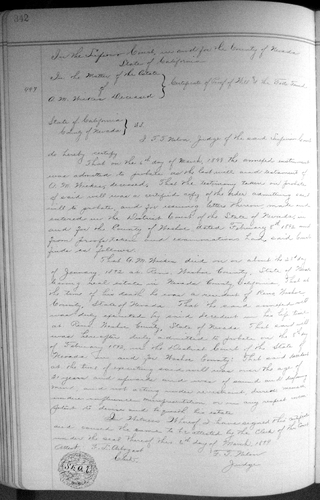 342
In the Superior Court in and for the County of Nevada
State of California
In the Matter of the Estate
of
Deceased
Certificate of Proof of Will & the Facts Found
State of California
County of Nevada } SS.
I, F. T. Nilon, Judge of the said Superior Court
do hereby certify
That on the day of March 1899 the annexed instrument
was admitted to probate as the last will and testament of
deceased; That the testimony taken on probate
of said will was a certified copy of the order admitting said
will to probate, and for issuance letters
entered in the District Court of the State of Nevada, in
and for the County of Washoe dated February 8th 1892, and
from proofs taken and examinations had, said Court
finds as follows:
That died on or about the day
of January 1892 at Reno, Washoe County, State of Nevada
leaving real estate in Nevada County California. That at
the time of his death he was a resident of Reno Washoe
County, State of Nevada. That the annexed will
was duly executed by said decedent in his life time
at Reno Washoe County, State of Nevada. That said will
was thereafter duly admitted to probate on the 8th day
of February 1892, in the District Court of the State of
Nevada in and for Washoe County; That said decedent
at the time of executing said will was over the age of
years and upwards and was of sound and disposing
mind and not acting under restraint, duress, menace
undue influence, misrepresentation, or in any respect
to devise and bequeath his estate.
In Witness Whereof I have signed this certificate
and caused the same to be attested by the Clerk of the Court
under the seal thereof this day of March 1899
Attest
Clerk
F. T. Nilon
Judge
SEAL